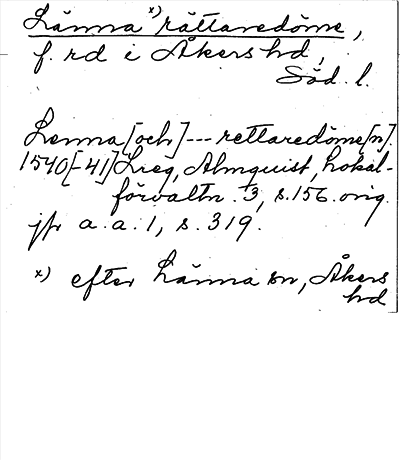 Länna x) rättaredöme,
f. rd i Åkers hd,
Söd. l.
Lenna [och] --- rettaredöme[n].
1540[-41] Lreg, Almquist, Lokal-
förvaltn. 3, s. 156. orig.
jfr a.a. 1, s. 319.
x) efter Länna sn, Åkers
hd